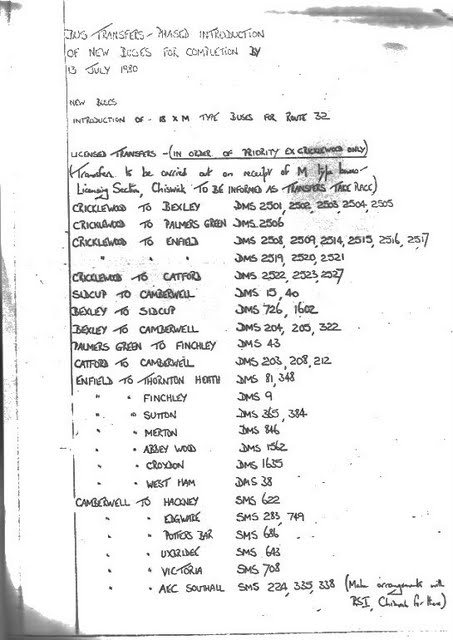 BUS TRANSFERS - PHASED INTRODUCTION
OF NEW BUSES FOR COMPLETION BY
13 JULY 1980
NEW BUSES
INTRODUCTION OF - 18 X M TYPE BUSES FOR ROUTE 32
LICENSED TRANSFERS - (IN ORDER OF PRIORITY EX CRICKLEWOOD ONLY)
(Transfers to be carried out on receipt of M type buses -
Licensing Section, Chiswick TO BE INFORMED AS TRANSFERS TAKE PLACE)
CRICKLEWOOD TO BEXLEY DMS 2501, 2502, 2503, 2504, 2505
CRICKLEWOOD TO PALMERS GREEN DMS 2506
CRICKLEWOOD TO ENFIELD DMS 2508, 2509, 2514, 2515, 2516, 2517
" " " DMS 2519, 2520, 2521
CRICKLEWOOD TO CATFORD DMS 2522, 2523, 2527
SIDCUP TO CAMBERWELL DMS 15, 40
BEXLEY TO SIDCUP DMS 726, 1602
BEXLEY TO CAMBERWELL DMS 204, 205, 322
PALMERS GREEN TO FINCHLEY DMS 43
CATFORD TO CAMBERWELL DMS 203, 208, 212
ENFIELD TO THORNTON HEATH DMS 81, 348
" " FINCHLEY DMS 9
" " SUTTON DMS 365, 384
" " MERTON DMS 846
" " ABBEY WOOD DMS 1562
" " CROYDON DMS 1635
" " WEST HAM DMS 38
CAMBERWELL TO HACKNEY SMS 622
" " EDGWARE SMS 283, 749
" " POTTERS BAR SMS 686
" " UXBRIDGE SMS 643
" " VICTORIA SMS 708
" " AEC SOUTHALL SMS 224, 335, 338 (Make arrangements with
RSI, Chiswick for these)